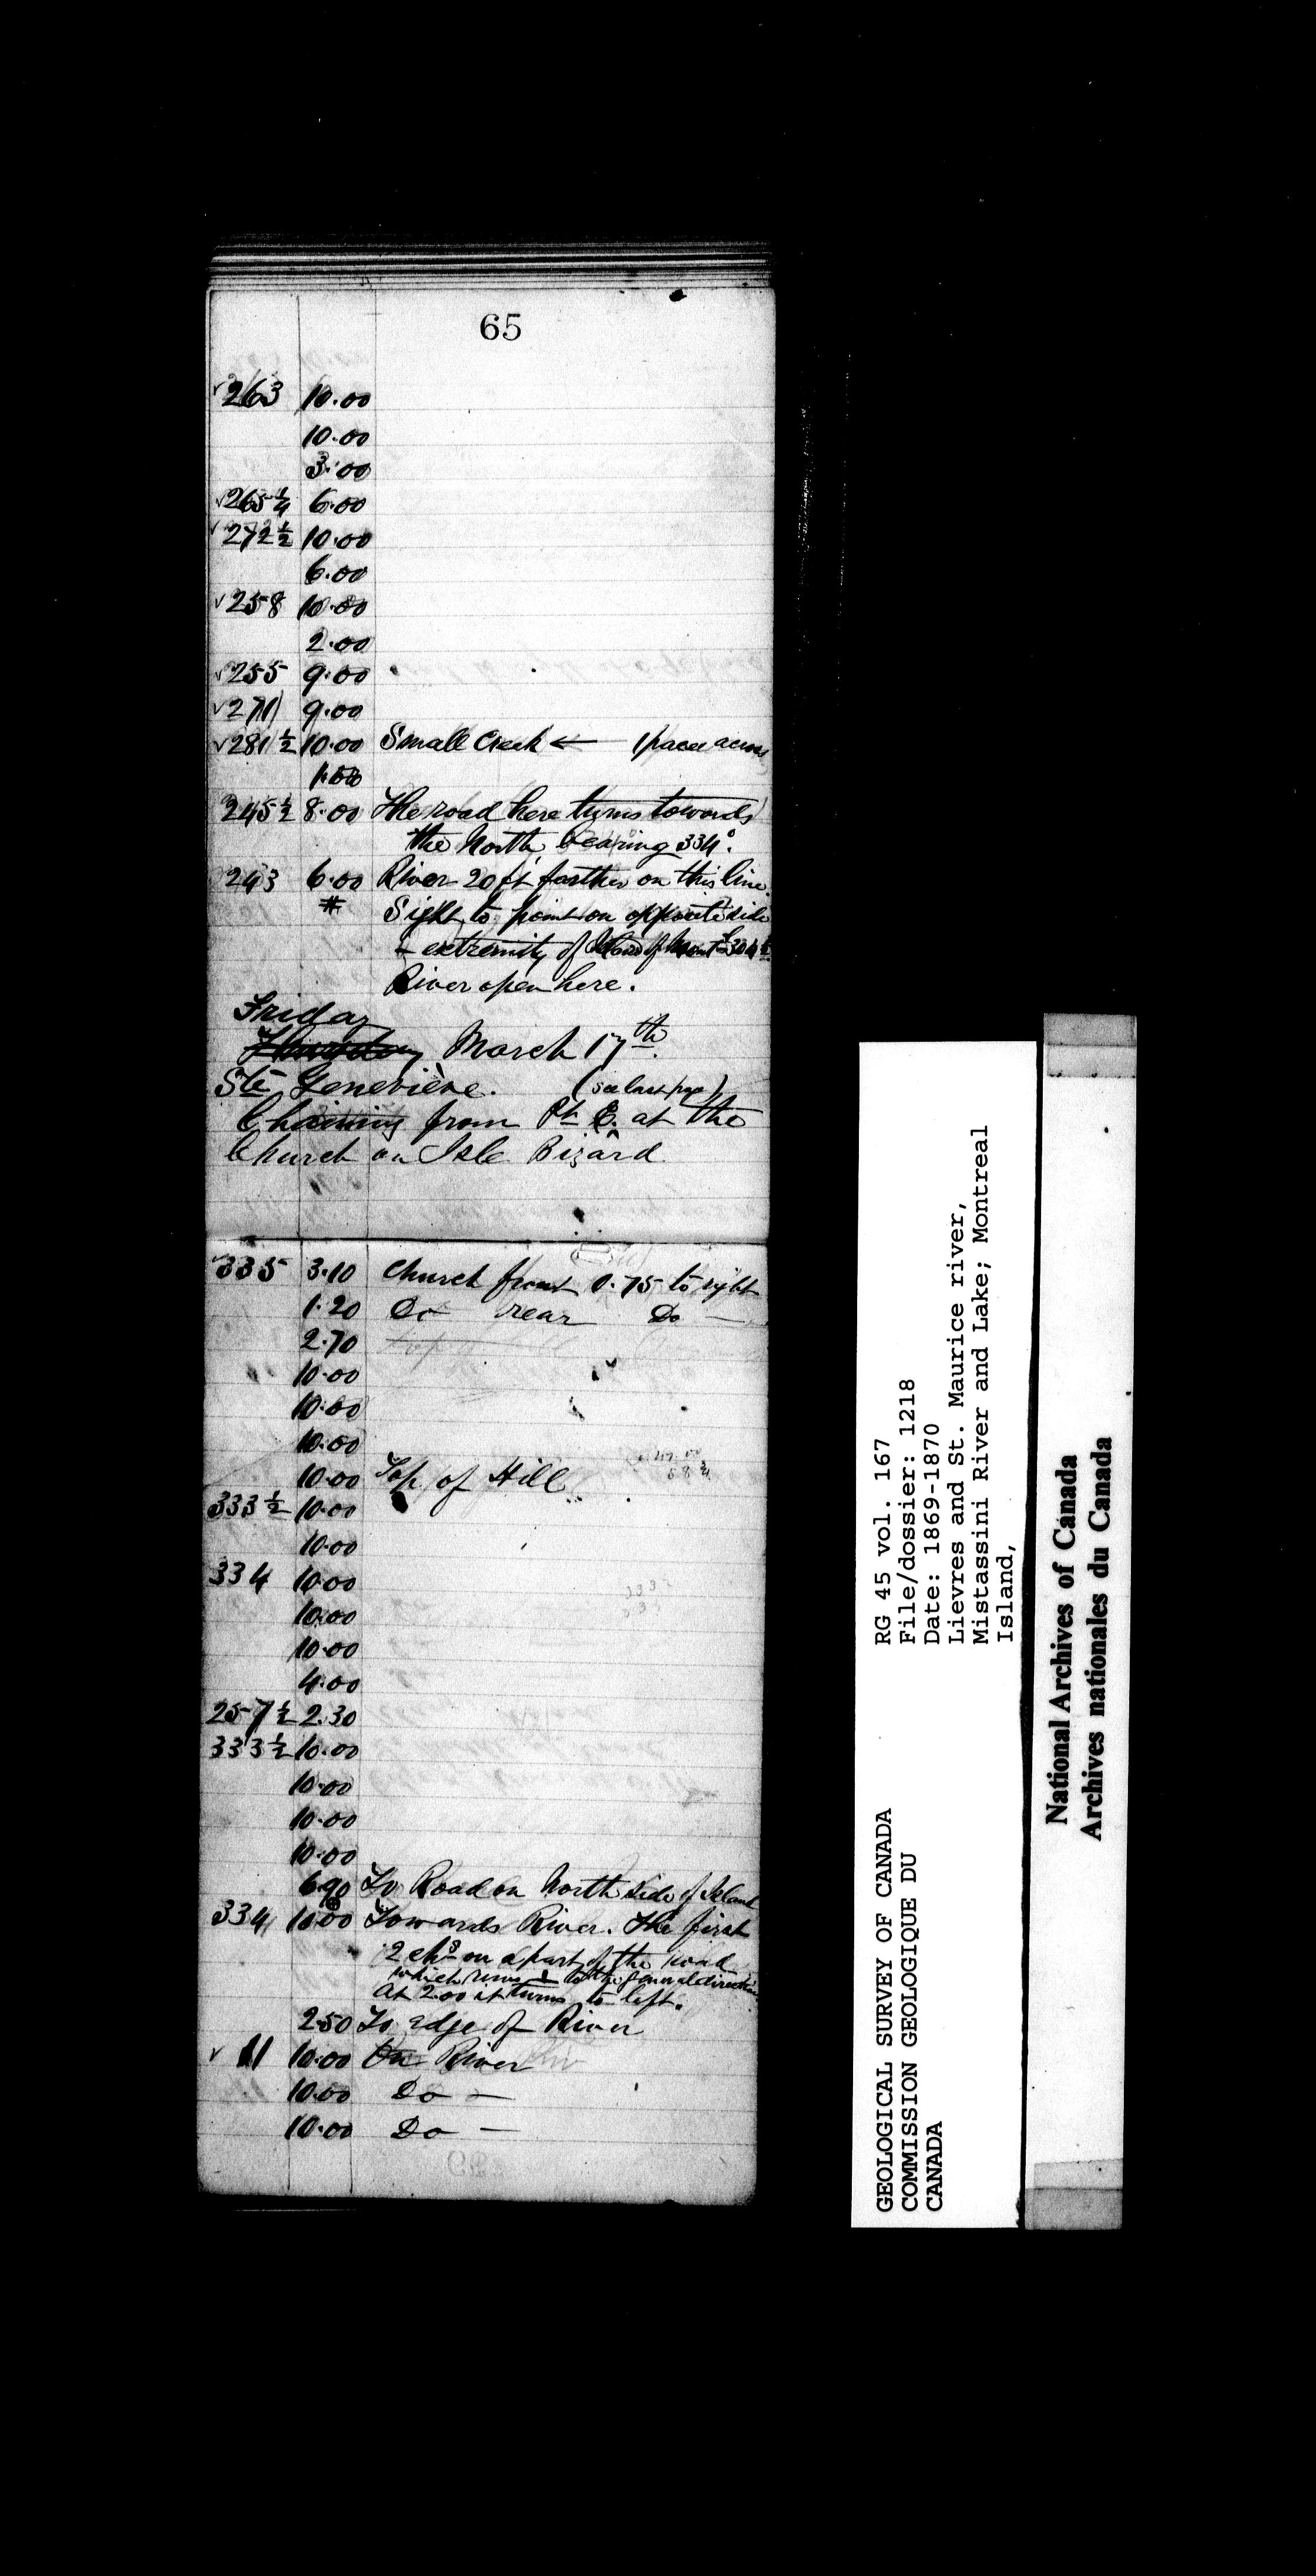 65
263 10.00
10.00
3.00
265 1/4 6.00
272 1/2 10.00
6.00
258 10.00
2.00
255 9.00
271 9.00
281 1/2 10.00 Small Creek ← 1 pace across
1.50
245 1/2 8.00 The road here turns towards
the North bearing 334°.
243 6.00 River 20 ft farther on this line.
# Sight to point on opposite side
extremity of Island of
River open here.
Friday
Thursday March 17th.
Ste Geneviève. (see last page)
Chaining from Pt E. at the
Church on Isle Bizârd
335 3.10 Church front 0.75 to right
1.20 Do rear Do —
2.70
10.00
10.00
10.00
10.00 Top of Hill
333 1/2 10.00
10.00
334 10.00
10.00
10.00
4.00
257 1/2 2.30
333 1/2 10.00
10.00
10.00
10.00
6.90 To Road on North side of Island
334 10.00 Towards River. The first
2 chs on a part of the road
which runs ⊥ to the general direction
at 2.00 it turns to left.
2.50 To edge of River
✓ 11 10.00 On River
10.00 Do —
10.00 Do —
GEOLOGICAL SURVEY OF CANADA
COMMISSION GEOLOGIQUE DU
CANADA
RG 45 vol. 167
File/dossier: 1218
Date: 1869-1870
Lievres and St. Maurice river,
Mistassini River and Lake; Montreal
Island,
National Archives of Canada
Archives nationales du Canada